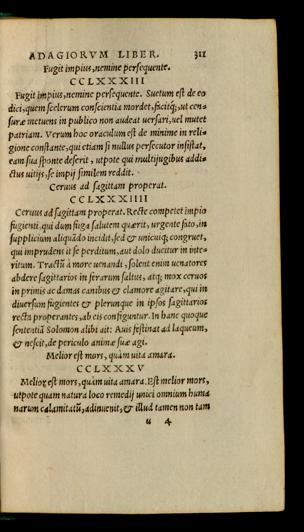 ADAGIORVM LIBER. 311
Fugit impius, nemine persequente.
CCLXXXIII
Fugit impius, nemine persequente. Suetum est de eo
dici, quem scelerum conscientia mordet, ficitq́; ut cen-
suræ metuens in publico non audeat uersari, uel mutet
patriam. Verum hoc oraculum est de minime in reli-
gione constante, qui etiam si nullus persecutor insistat,
eam sua sponte deserit, utpote qui multijugibus addi-
ctus uitijs, se impij similem reddit.
Ceruus ad sagittam properat.
CCLXXXIIII
Ceruus ad sagittam properat. Recte competet impio
fugienti, qui dum fuga salutem quærit, urgente fato, in
supplicium aliquãdo incidit, sed & unicuiq; congruet,
qui imprudens it se perditum, aut dolo ducitur in inte-
ritum. Tractũ à more uenandi, solent enim uenatores
abdere sagittarios in ferarum saltus, atq; mox ceruos
in primis ac damas canibus & clamore agitare, qui in
diuersum fugientes & plerunque in ipsos sagittarios
recta properantes, ab eis configuntur. In hanc quoque
sententiã Solomon alibi ait: Auis festinat ad laqueum,
& nescit, de periculo animæ suæ agi.
Melior est mors, quàm uita amara.
CCLXXXV
Melior est mors, quàm uita amara. Est melior mors,
utpote quam natura loco remedij unici omnium huma
narum calamitatũ, adinuenit, & illud tamen non tam
u 4